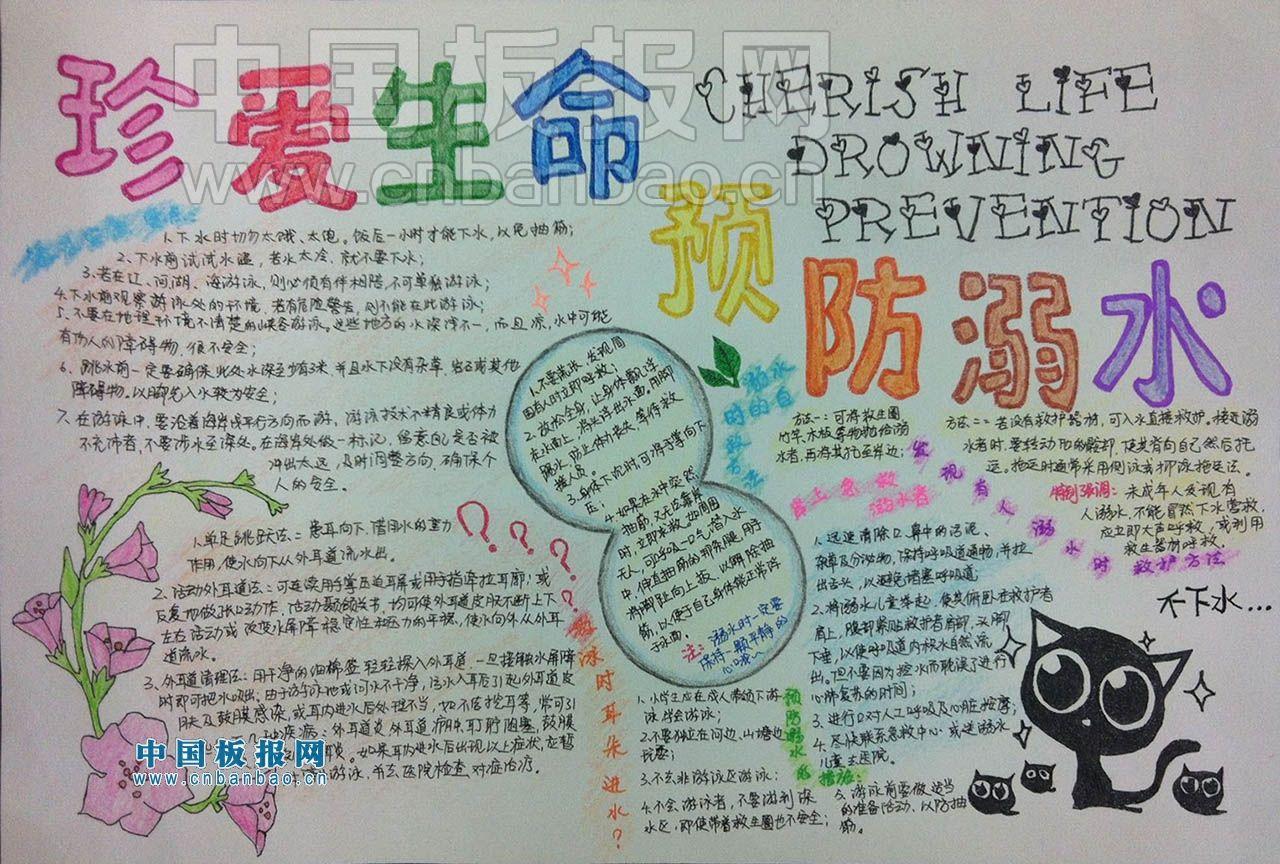 珍爱生命
CHERISH LIFE
DROWNING
PREVENTION
预
防溺水
中国板报网
www.cnbanbao.cn
1.下水时切勿太饿、太饱。饭后一小时才能下水,以免抽筋;
2.下水前试试水温,若水太冷,就不要下水;
3.若在江、河湖、海游泳,则必须有伴相陪,不可单独游泳;
4.下水前观察游泳处的环境,若有危险警告,则不能在此游泳;
5.不要在地理环境不清楚的峡谷游泳。这些地方的水深浅不一,而且凉,水中可能
有伤人的障碍物,很不安全;
6.跳水前一定要确保此处水深至少有3米,并且水下没有杂草、岩石或其他
障碍物。以脚先入水较为安全;
7.在海游中,要沿着海岸线平行方向而游,游泳技术不精良或体力
不充沛者,不要涉水至深处。在海岸处做一标记,留意自己是否被
冲出太远,及时调整方向,确保个
人的安全。
1.单足跳跃法:患耳向下,借用水的重力
作用,使水向下从外耳道流水出。
2.活动外耳道法:可连续用手掌压迫耳屏或用手指牵拉耳廓;或
反复地做张口动作,活动颞颌关节,均可使外耳道皮肤不断上下
左右活动或改变水屏障稳定性和压力的平衡,使水向外从外耳
道流水。
3.外耳道清理法:用干净的细棉签轻轻探入外耳道,一旦接触水屏障
时即可把水吸出。由于游泳池或河水不干净,污水入耳后引起外耳道皮
肤及鼓膜感染,或耳内进水后处理不当,如不洁挖耳等,常可引
疾病:外耳道炎
如果耳内进水后出现以上症状,应暂
游泳,并去医院检查、对症治疗。
中国板报网
www.cnbanbao.cn
???
游泳时耳朵进水?
1.不要慌张,发现周
围有人时立即呼救;
2.放松全身,让身体飘浮
在水面上,将头浮出水面,用脚
踢水,防止体力丧失,等待救
援人员。
3.身体下沉时,可将手掌向下
压;
4.如果在水中突然
抽筋,又无法靠岸
时,立即求救。如周围
无人,可深吸一口气潜入水
中,伸直抽筋的那条腿,用手
将脚趾向上扳,以解除抽
筋,以便于自己身体能正常浮
于水面。
注:溺水时一定要
保持一颗平静的
心哦~
溺水
时的自
救方法
方法一:可将救生圈
竹竿、木板等物抛给溺
水者,再将其拖至岸边;
方法二:若没有救护器材,可入水直接救护。接近溺
水者时要转动他的髋部,使其背向自己然后拖
运。拖运时通常采用侧泳或仰泳拖运法。
特别强调:未成年人发现有
人溺水,不能冒然下水营救,
应立即大声呼救,或利用
救生器材呼救。
发现有人溺水时救护方法
岸上急救
溺水者
1.迅速清除口、鼻中的污泥、
杂草及分泌物,保持呼吸道通畅,并拉
出舌头,以避免堵塞呼吸道;
2.将溺水儿童举起,使其俯卧在救护者
肩上,腹部紧贴救护者肩部,头脚
下垂,以使呼吸道内积水自然流
出。但不要因为控水而耽误了进行
心肺复苏的时间;
3.进行口对人工呼吸及心脏按摩;
4.尽快联系急救中心或送溺水
儿童去医院。
预防溺水的措施:
1.小学生应在成人带领下游
泳、学会游泳;
2.不要独立在河边、山塘边
玩耍;
3.不去非游泳区游泳;
4.不会游泳者,不要游到深
水区,即使带着救生圈也不安全;
5.游泳前要做适当
的准备活动,以防抽
筋。
不下水...